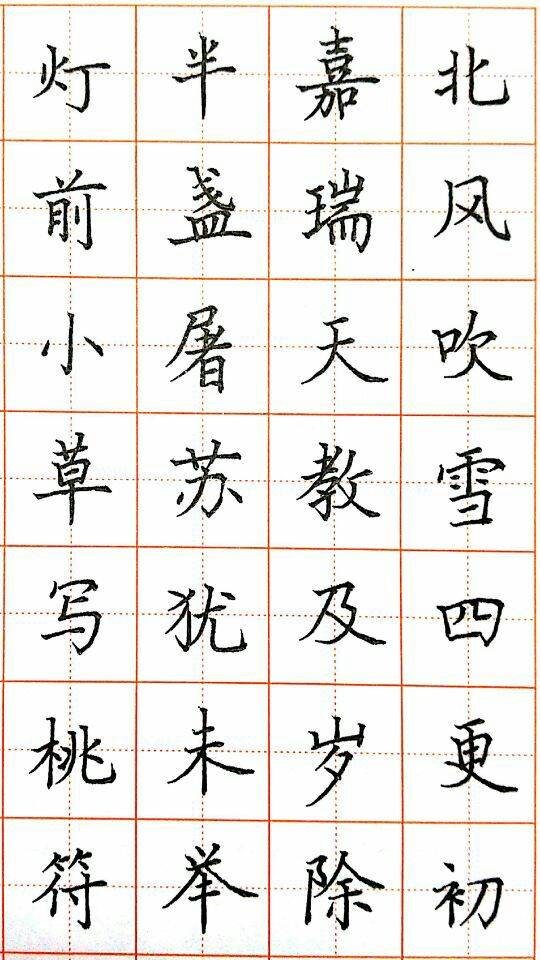 北风吹雪四更初
嘉瑞天教及岁除
半盏屠苏犹未举
灯前小草写桃符